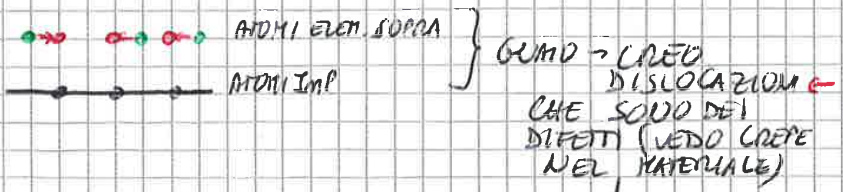 ATOMI ELEM. SOPRA
ATOMI INP
→ CREO
DISLOCAZIONI ←
CHE SONO DEI
DIFETTI (VEDO CREPE
NEL MATERIALE)